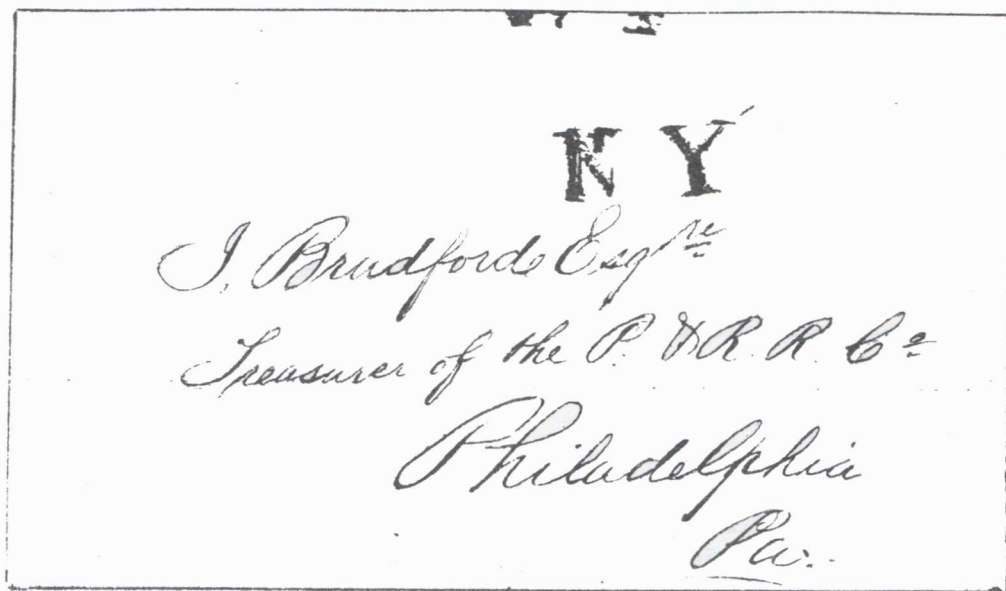 N Y
S. Bradford Esqre
Treasurer of the P. & R. R. Co
Philadelphia
Pa.